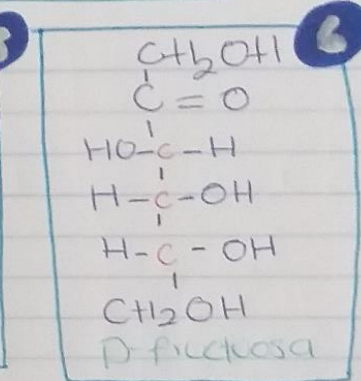 6
CH₂OH
C = O
HO-C-H
H-C-OH
H-C-OH
CH₂OH
D-fructuosa